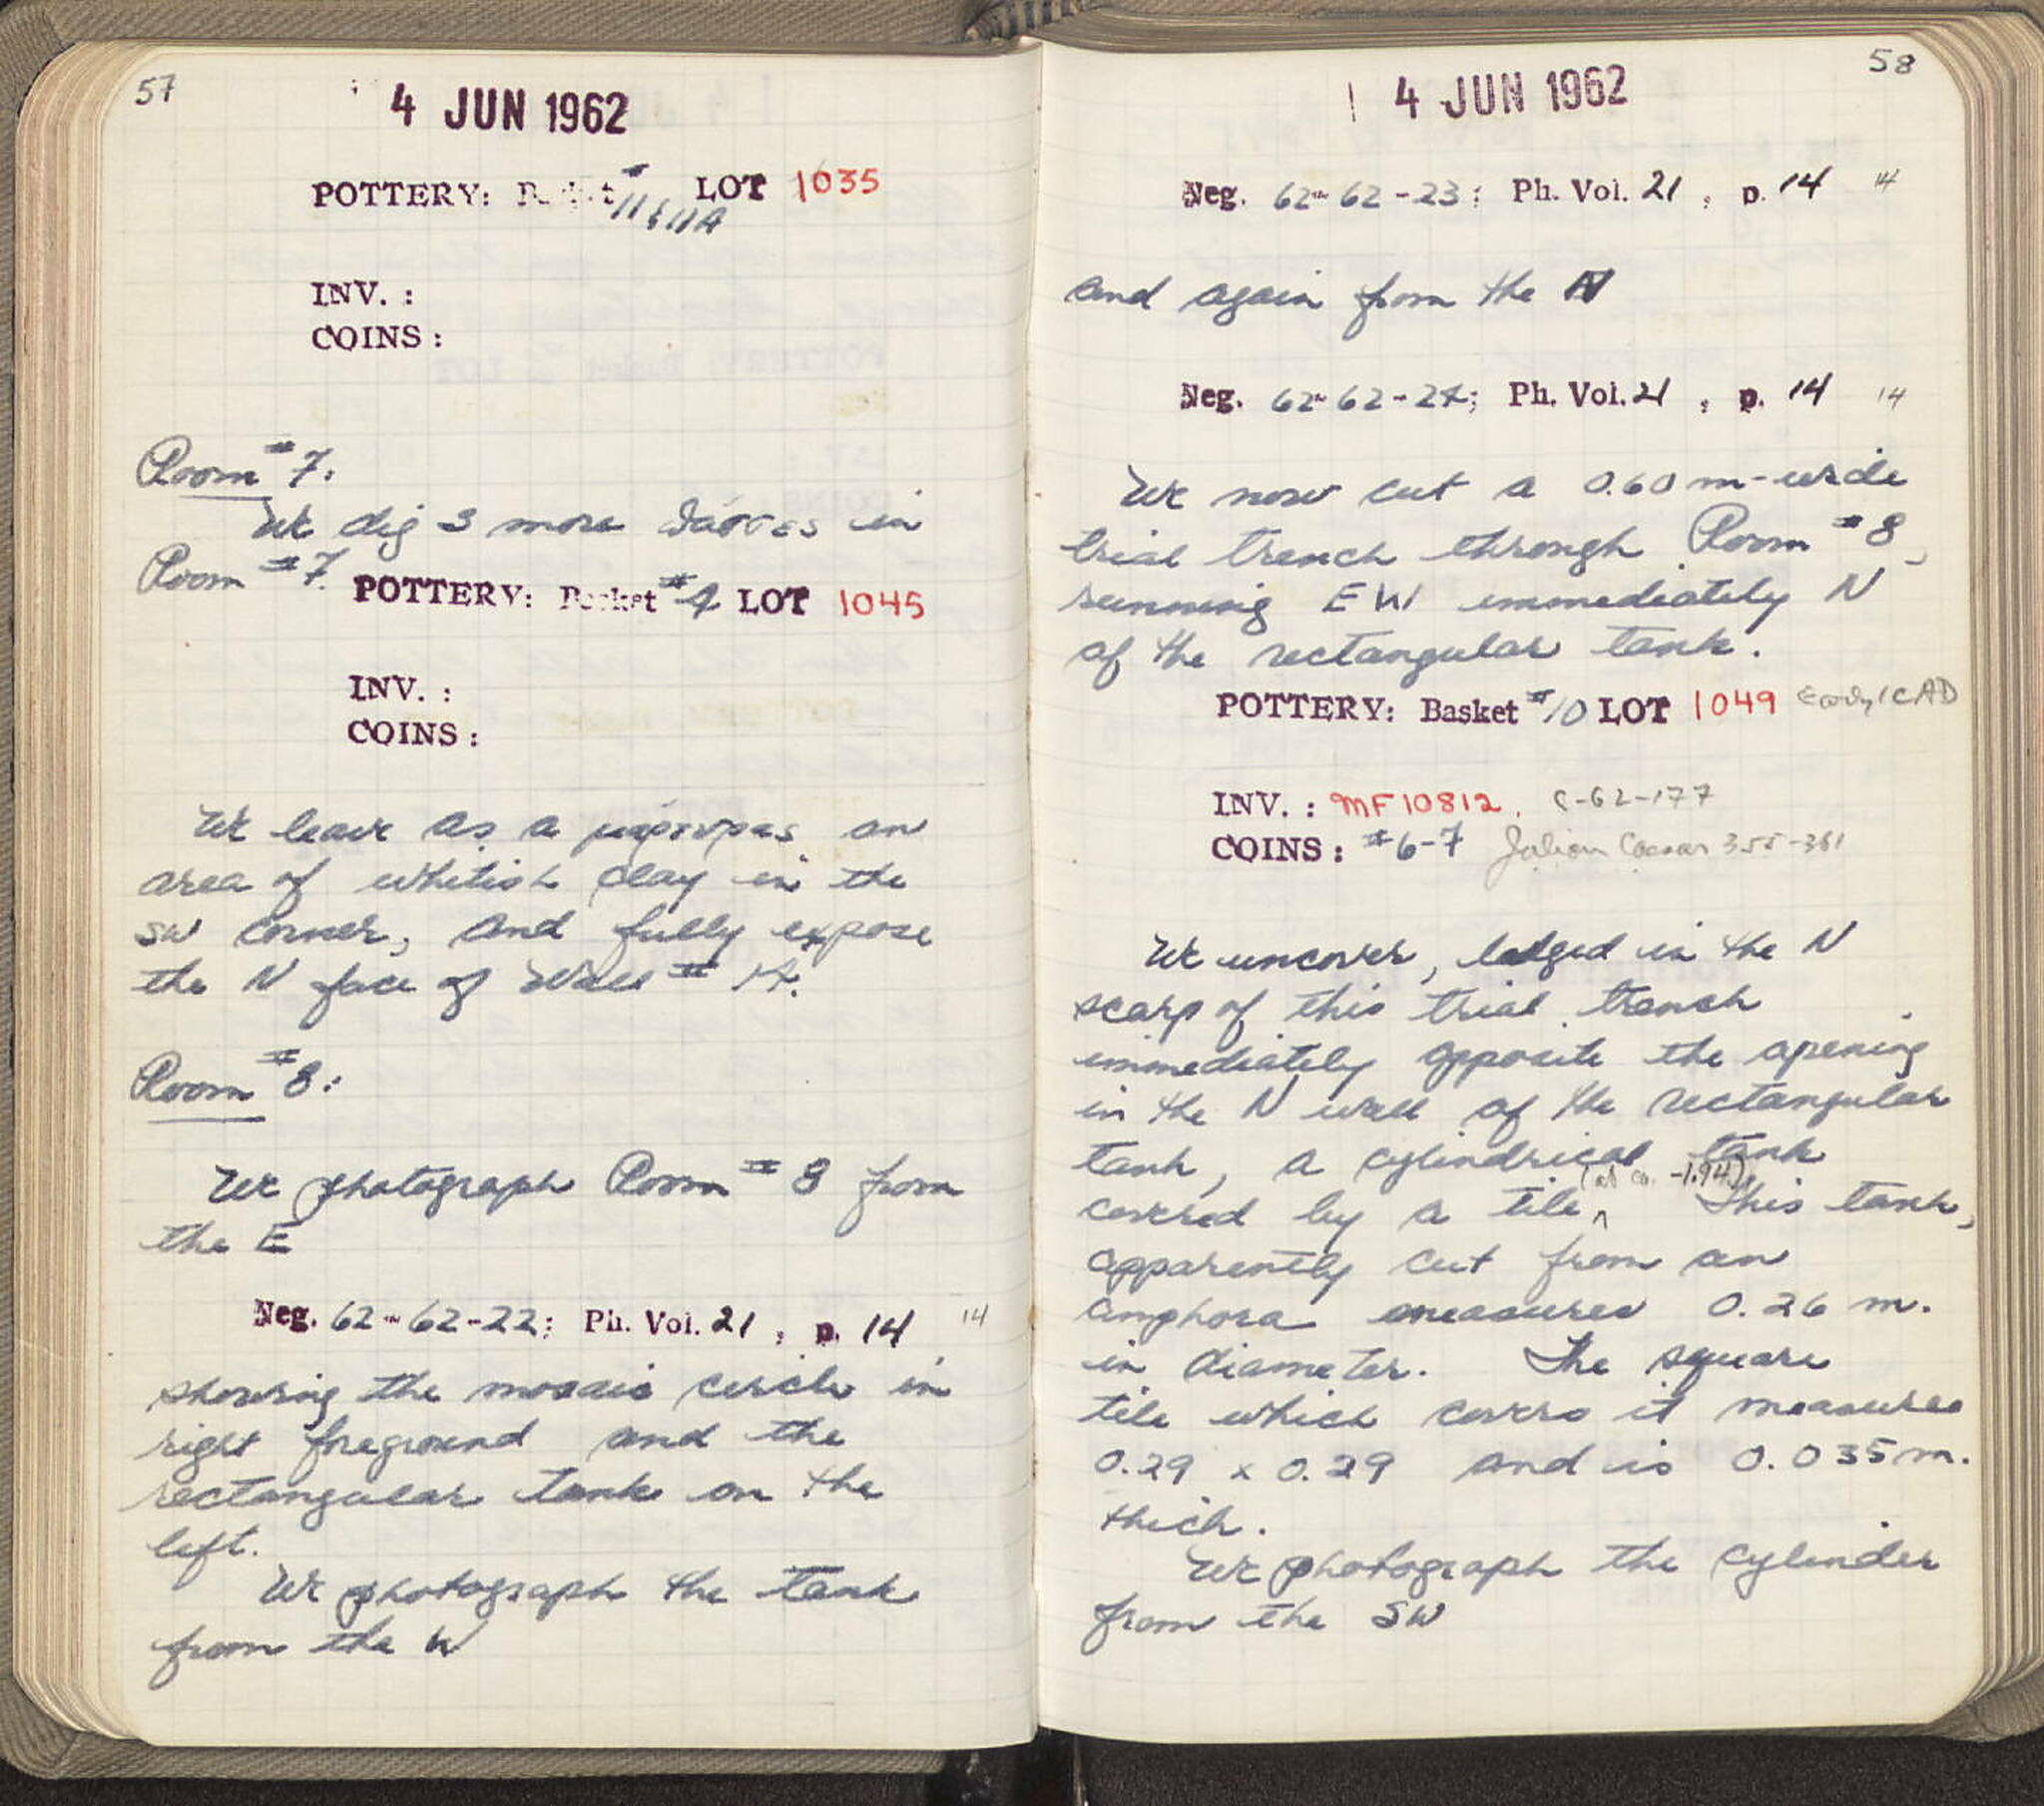 57
4 JUN 1962
POTTERY: Basket # 11 & 11A LOT 1035
INV. :
COINS :
Room #7:
We dig 3 more λάκκες in
Room #7.
POTTERY: Basket #4 LOT 1045
INV. :
COINS :
We leave as a μάρτυρας an
area of whitish clay in the
SW corner, and fully expose
the N face of Wall # 14.
Room #8:
We photograph Room #8 from
the E
Neg. 62-62-22; Ph. Vol. 21 , p. 14 14
showing the mosaic circle in
right foreground and the
rectangular tank on the
left.
We photograph the tank
from the W
58
4 JUN 1962
Neg. 62-62-23; Ph. Vol. 21 , p. 14 14
and again from the N
Neg. 62-62-24; Ph. Vol. 21 , p. 14 14
We now cut a 0.60 m-wide
trial trench through Room #8,
running EW immediately N
of the rectangular tank.
POTTERY: Basket #10 LOT 1049 Early 1C AD
INV. : MF10812, C-62-177
COINS : #6-7 Julian Caesar 355-361
We uncover, lodged in the N
scarp of this trial trench
immediately opposite the opening
in the N wall of the rectangular
tank, a cylindrical tank
covered by a tile (at ca. -1.94). This tank,
apparently cut from an
amphora measures 0.26 m.
in diameter. The square
tile which covers it measures
0.29 x 0.29 and is 0.035 m.
thick.
We photograph the cylinder
from the SW